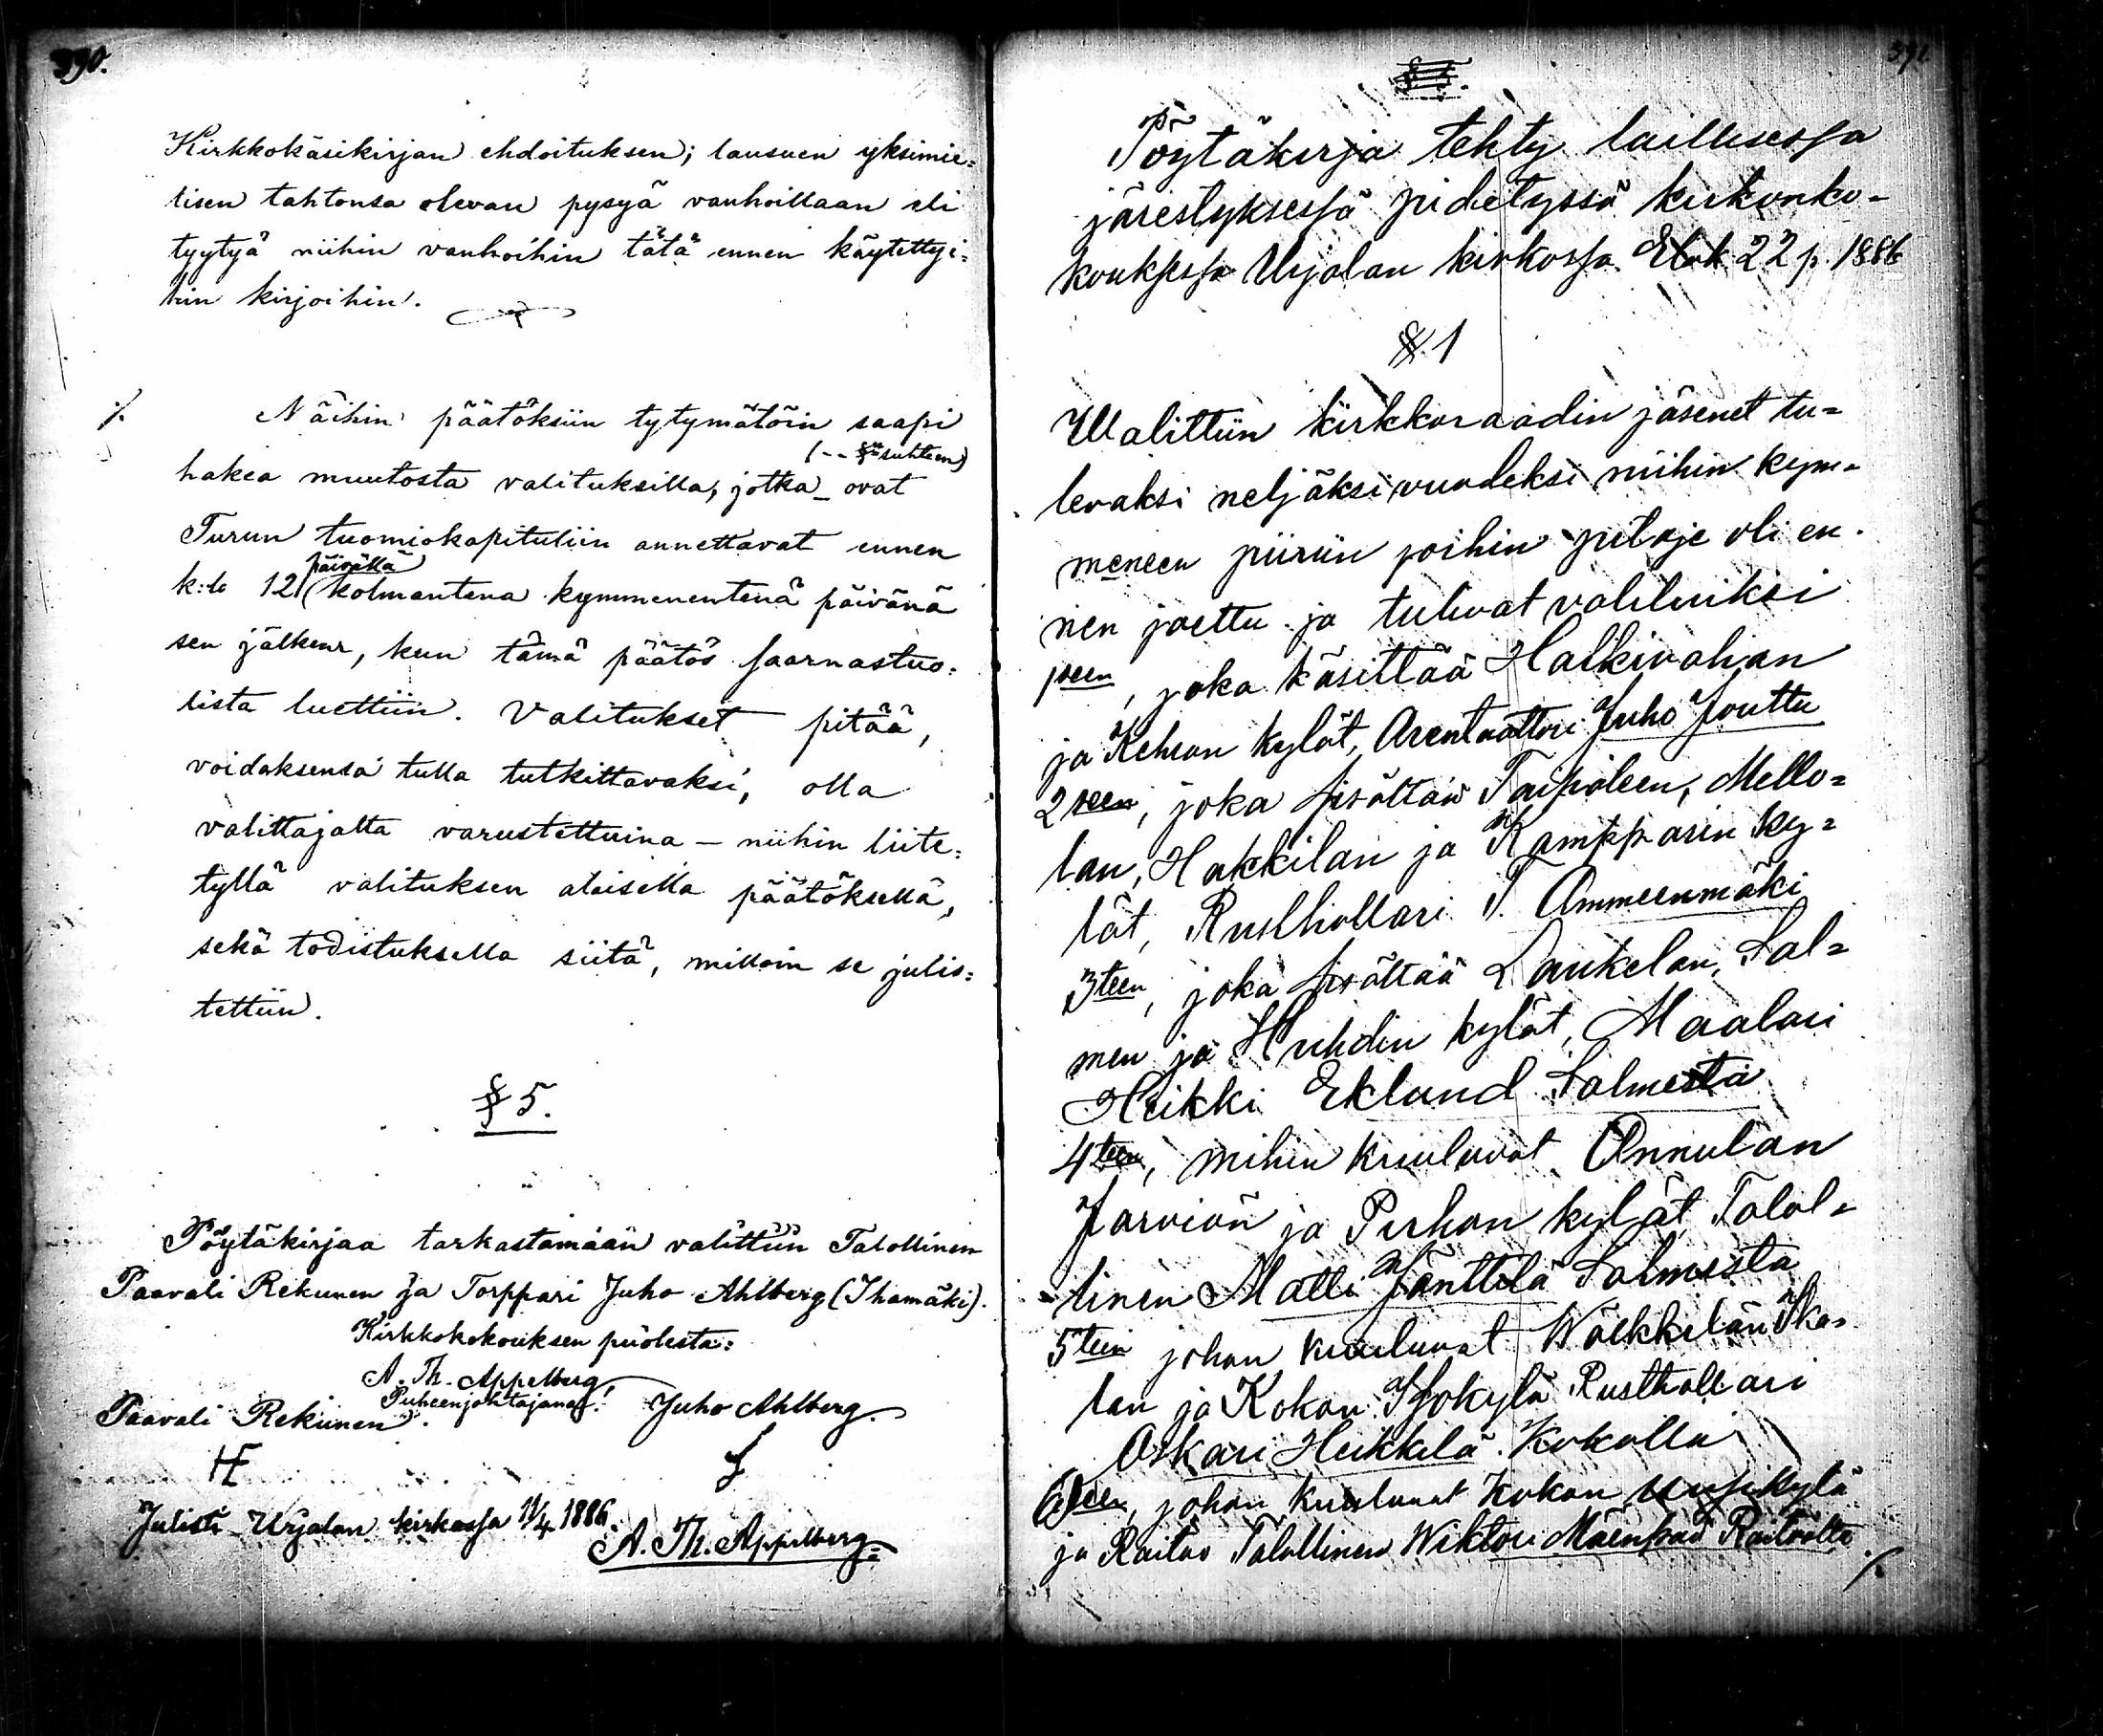 390.
Kirkkokäsikirjan ehdoituksen; lausuen yksimie=
lisen tahtonsa olevan pysyä vanhoillaan eli
tyytyä niihin vanhoihin tätä ennen käytettyi=
hin kirjoihin.
·/.
Näihin päätöksiin tytymätöin saapi
(-- §:n suhteen)
hakea muutosta valituksilla, jotka ovat
Turun tuomiokapituliin annettavat ennen
päivällä
k:lo 12 kolmantena kymmenentenä päivänä
sen jälkeen, kun tämä päätös saarnastuo=
lista luettiin. Valitukset pitää,
voidaksensa tulla tutkittavaksi, olla
valittajalta varustettuina – niihin liite=
tyllä valituksen alaisella päätöksellä,
sekä todistuksella siitä, milloin se julis=
tettiin.
§ 5.
Pöytäkirjaa tarkastamaan valittiin Talollinen
Paavali Rekunen ja Torppari Juho Ahlberg (Ihamäki).
Kirkkokokouksen puolesta:
A. Th. Appelberg,
Puheenjohtajana.
Paavali Rekunen. Juho Ahlberg.
Julisti Urjalan kirkossa 11/4 1886
A. Th. Appelberg.
391
Pöytäkirja tehty laillisessa
järestyksessä pidetyssä kirkonko-
kouksessa Urjalan kirkossa Elok 22 p. 1886
§ 1
Walittiin kirkkoraadin jäsenet tu=
levaksi neljäksi vuodeksi niihin kym=
meneen piiriin joihin pitäje oli en-
nen jaettu ja tulivat valituiksi
1seen, joka käsittää Halkivahan
ja Kehron kylät, Arentaattori Juho Jouttu
2seen, joka sisältää Taipaleen, Mello=
lan, Hakkilan ja Kampparin ky=
lät, Rusthollari T. Ammeenmäki
3teen, joka sisältää Laukelan, Sal=
men ja Huhdin kylät, Maalari
Heikki Eklund Salmesta
4teen, mihin kuuluvat Annulan
Jarvion ja Purhan kylät Talol=
linen Matti Jänttilä Salmesta
5teen johon kuuluvat Wälkkilän Ska=
lan ja Kokon Isokylä Rusthollari
Oskari Heikkilä Kokolla
6teen, johon kuuluvat Kokon Uusikylä
ja Raitoo Talollinen Wiktori Mäenpää Raitoolta
·/.